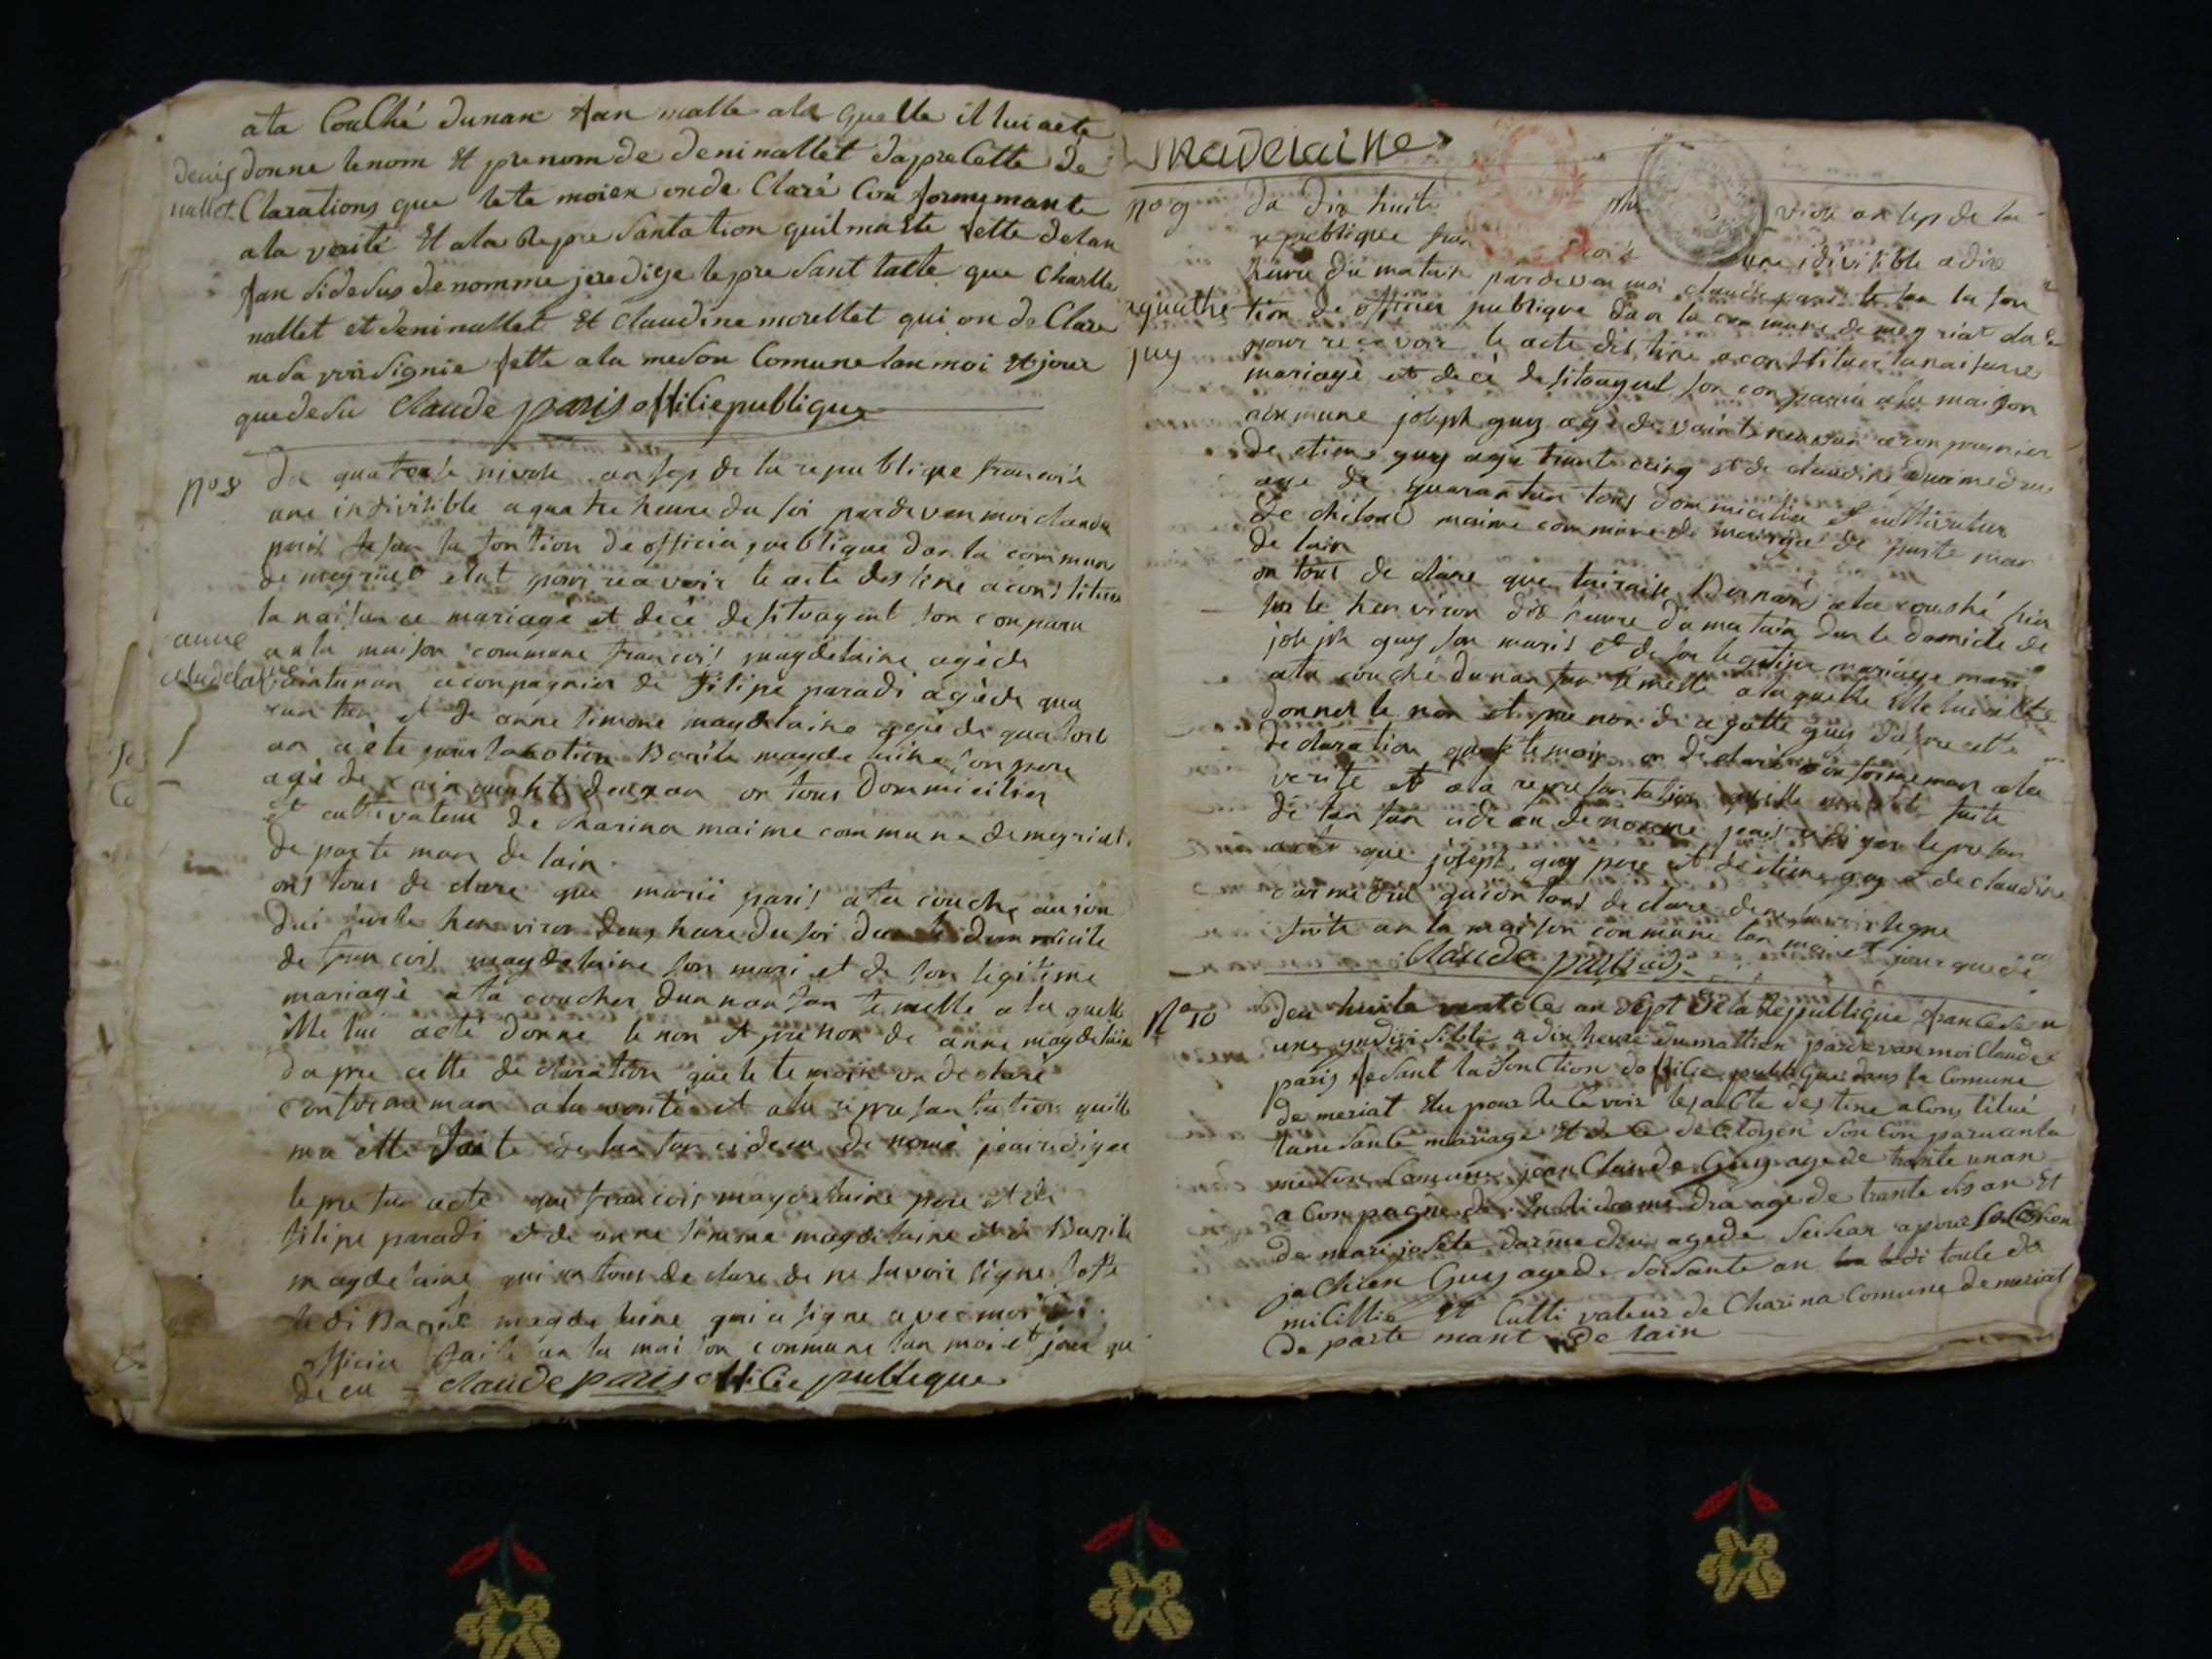 ata Couché dunan fan malle ala quelle il lui aete
denis donne lenom et prenom de deninallet daprelette de
nallet Clarations que lete moien onde Claré Con formemante
ala vaité et ala Repre santation quil ma ete fette delan
fan sidesus denomme jeredige lepre sant tacte que Charlle
nallet et deninallet et Claudine morellet qui on de Clare
ne sa voir signie fette ala meson Comune lan moi et jour
que desu Claude paris officiepublique
no 8 du quatorse nivose an sep de la republique francoise
une indivisible a quatre heure du soi pardevan moi claude
paris fesan la fontion de officia publique dan la commun
de meyriat elut pour recevoir le acte destine a constitue
la naisance mariage et decé de sitoayent son conparu
anne
magdelaine
anla maison commune francois magdelaine agé de
vaintunan aconpagnier de filipe paradi agé de qua
ran tan et de anne simone magdelaine agé de quatorse
an a ete pour sa otion Basile magdelaine son pere
agé de cainquant deuxan on tous dommicilies
et cultivateur de Charina maime commune de meyriat
de parte man de lain
ons tous de clare que marii paris ata couche aujour
dui sur le henviron deux heure du soi dan le dommicile
de francois magdelaine son mari et de son legitime
mariage ata coucher dunnan fan femelle ala quelle
ille lui aeté donne le non et prenon de anne magdelaine
dapre cette declaration que le temoin on declaré
conformeman ala verité et ala represantation quille
ma ette faite de lan fan cideu denomé jeairedigee
le presan acte que francois magdelaine pere et de
filipe paradi et de anne simone magdelaine et de Basile
magdelaine qui on tous de clare de ne savoir signe
le di Basile magdelaine qui a signe avec moi
officier faite an la maison commune lan moi et jour que
deeu claude paris officie publique
Madelaine
no 9 du dix huite viose an sep de la
republique fran une idivisible a dix
heure du matain pardevan moi claude paris fesan la fon
aguathe
guy
tion de officier publique dan la commune de meyriat
pour recevoir le acte destine a constitue la naisance
mariage et decé de sitoayent son conparu a la maison
commune joseph guy agé de vainteneuvan aconpagnier
de etiene guy agé trante cainq et de claudine
age de quarantan tous dommicilier et cultivateur
de maime commune de meyriat de parte man
de lain
on tous de clare que Bernard ata couché hier
sur le henviron dix heure du matain dan le domicile de
joseph guy son maris et de son legitime mariage
ata couché dunan fan femelle ala quelle ille lui aete
donner le non et prenon de agatte guy dapre cette
declaration que le temoin on declaré conformeman ala
verité et ala represantation quille ma ete faite
de lan fan cideeu denomme jeai redigee le presan
acte que joseph guy pere et de etiene guy et de claudine
quion tous declare denesavoir signe
faite an la maison commune lan moi et jour que de
Claude paris
No 10 deu huite vantole an sept de la Republique francese
une yndivisible a dix heure dumattien pardevan moi Claude
paris fesant la fonction de officie publique dans la Comune
de meriat elu pour Recevoir lesacte destine a Constitué
lanesante mariage et de Ce de Citoyen son Conparu anla
meison Comune jean Claude Guy age de trante unan
a Conpagne de age de trante sis an et
de mari josete darmedru agede seisean apour
guy agede soisante an
miCillie et Cultivateur de Charina Comune de meriat
de parte mant de lain